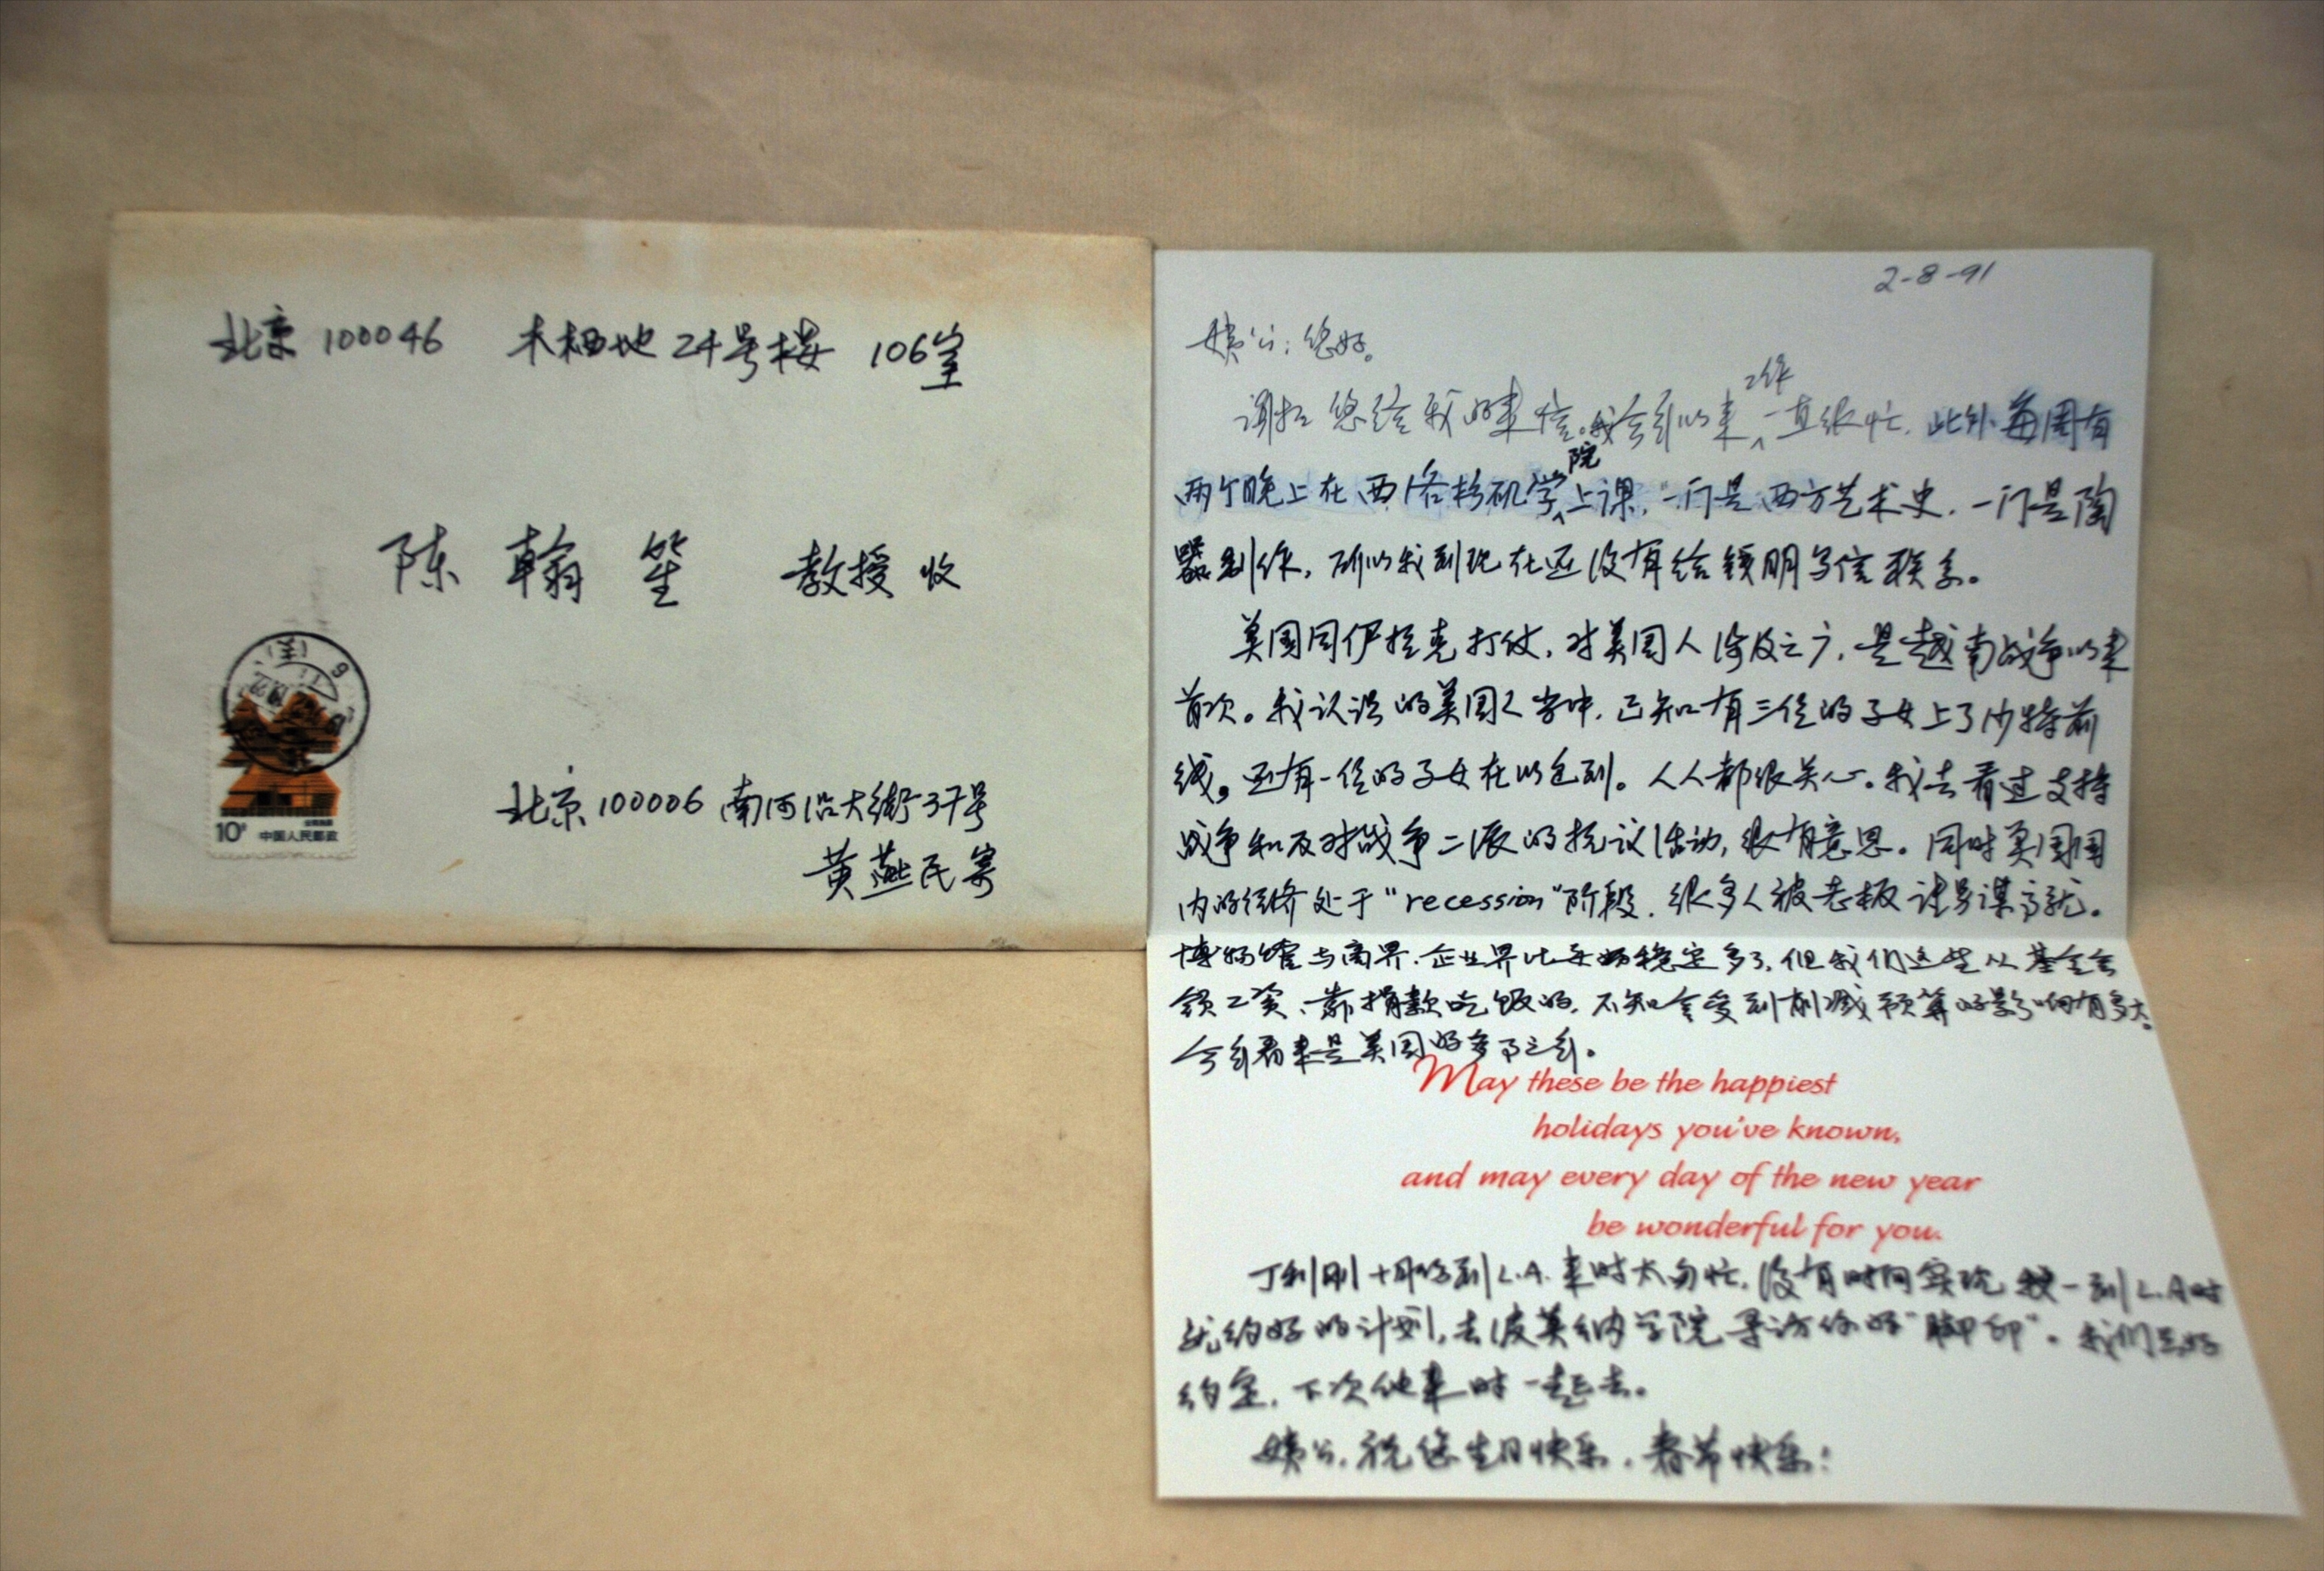 北京 100046 木樨地 24号楼 106室
陈翰笙 教授 收
10分 中国人民邮政
北京 100006 南河沿大街37号
黄燕民寄
2-8-91
姨公：您好。
谢谢您给我的来信。我会到以来工作一直很忙，此外每周有
两个晚上在西洛杉矶学院上课，一门是西方艺术史，一门是陶
器制作，所以我到现在还没有给钱明写信联系。
美国同伊拉克打仗，对美国人涉及之广，是越南战争以来
首次。我认识的美国人当中，已知有三位的子女上了沙特前
线，还有一位的子女在以色列。人人都很关心。我去看过支持
战争和反对战争二派的抗议活动，很有意思。同时美国国
内的经济处于"recession"阶段，很多人被老板请另谋高就。
博物馆与商界、企业界比要稳定多了，但我们这些从基金会
领工资、靠捐款吃饭的，不知会受到削减预算的影响有多大。
今年看来是美国的多事之年。
May these be the happiest
holidays you've known,
and may every day of the new year
be wonderful for you.
丁利刚十月份到L.A.来时太匆忙，没有时间实现我一到L.A.时
就约好的计划，去波莫纳学院寻访你的"脚印"。我们只好
约定，下次他来时一起去。
姨公，祝您生日快乐，春节快乐！